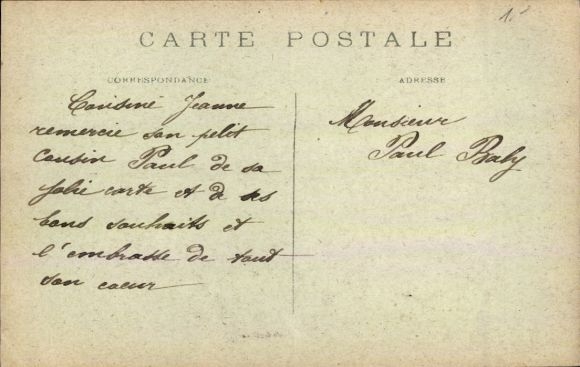 CARTE POSTALE
CORRESPONDANCE
ADRESSE
Cousine Jeanne
remercie son petit
cousin Paul de sa
jolie carte et de ses
bons souhaits et
l'embrasse de tout
son coeur
Monsieur
Paul Baly
1.-